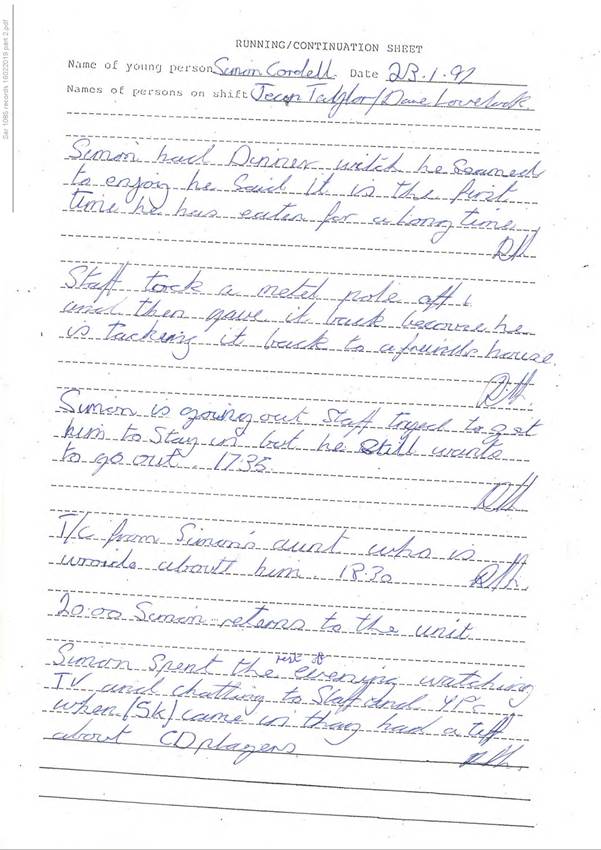 Sar 1085 records 16022019 part 2.pdf
RUNNING/CONTINUATION SHEET
Name of young person Simon Cordell. Date 23.1.97
Names of persons on shift Jean Taylor/Dave Lovelock
Simon had Dinner witch he seamed
to enjoy he said it is the first
time he has eaten for a long time.
Staff took a metel pole off
and then gave it back because he
is tacking it back to a freinds house
Simon is going out Staff tryed to get
him to stay in but he still wants
to go out. 17:35.
T/c from Simon's aunt who is
about him. 18.30
20:00 Simon returns to the unit
Simon spent the rest of evening watching
TV and chatting to staff and YPs
when (Sk) came in thay had a tiff
about CD players